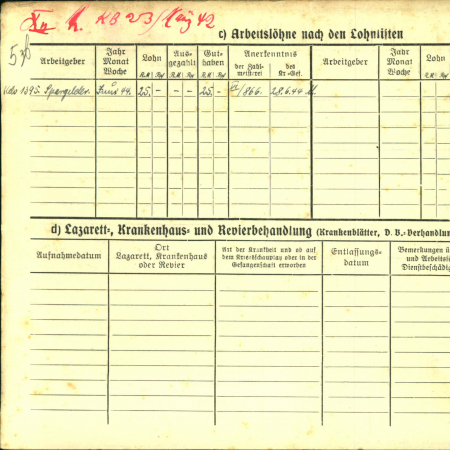 Xn h. KB 23/Maÿ 42
5
c) Arbeitslöhne nach den Lohnlisten
Arbeitgeber
Jahr Monat Woche
Lohn
R.M Rpf
Ausgezahlt
R.M Rpf
Guthaben
R.M Rpf
Anerkenntnis
der Zahlmeisterei
des Kr.-Gef.
Arbeitgeber
Jahr Monat Woche
Lohn
R.M Rpf
Kdo 1395. Spargelder. Juni 44. 25,- - - 25,- /866. 28.6.44
d) Lazarett-, Krankenhaus- und Revierbehandlung (Krankenblätter, D. B.-Verhandlun
Aufnahmedatum
Ort
Lazarett, Krankenhaus
oder Revier
Art der Krankheit und ob auf
dem Kriegsschauplatz oder in der
Gefangenschaft erworben
Entlassungs-
datum
Bemerkungen ü
und Arbeits
Dienstbeschädig